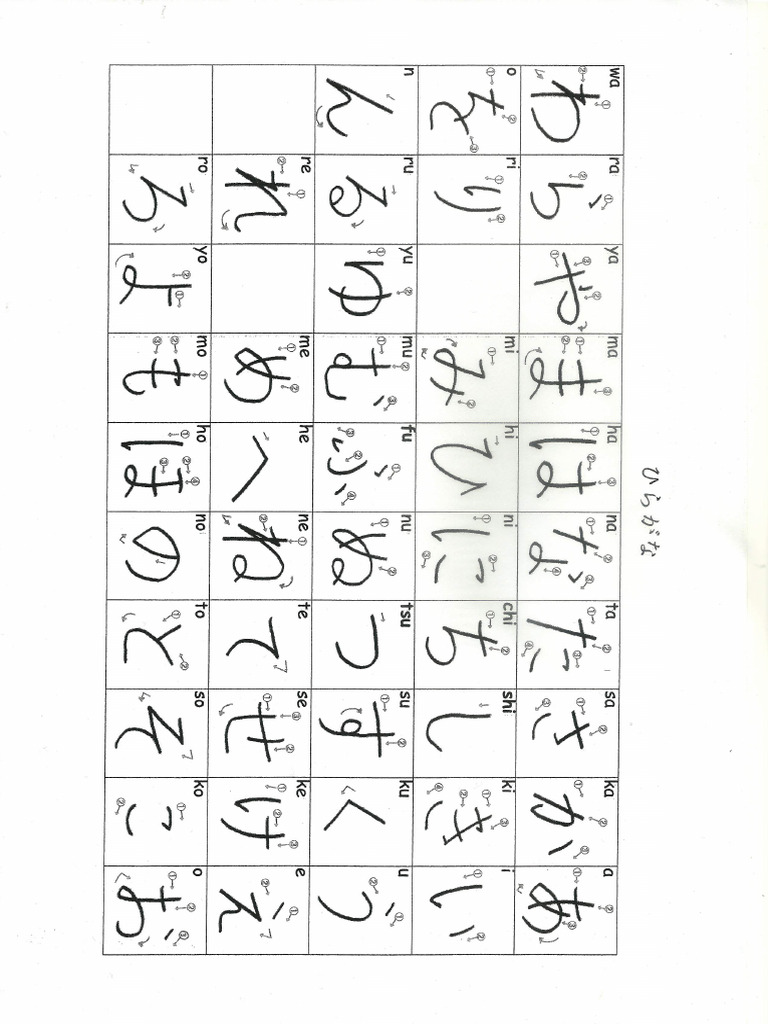 ひらがな
wa ra ya ma ha na ta sa ka a
わ ら や ま は な た さ か あ
o ri mi hi ni chi shi ki i
を り み ひ に ち し き い
n ru yu mu fu nu tsu su ku u
ん る ゆ む ふ ぬ つ す く う
re me he ne te se ke e
れ め へ ね て せ け え
ro yo mo ho no to so ko o
ろ よ も ほ の と そ こ お